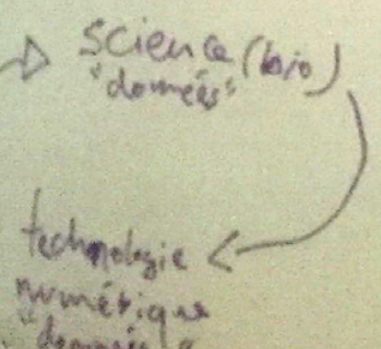 science (bio)
"données"
technologie
numérique
"données"